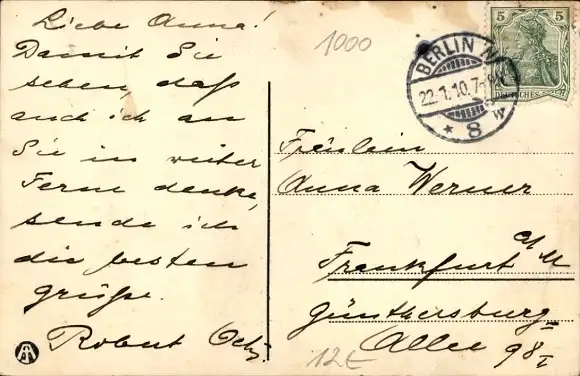 Liebe Anna!
Damit Sie
sehen daß
auch ich an
Sie in weiter
Ferne denke,
sende ich
die besten
grüße.
Robert
1000
BERLIN
22.1.10.7-8N
* 8 w
5 5
DEUTSCHES REICH
Fräulein
Anna Werner
Frankfurt a/M
Günthersburg-
Allee 98 I
12€